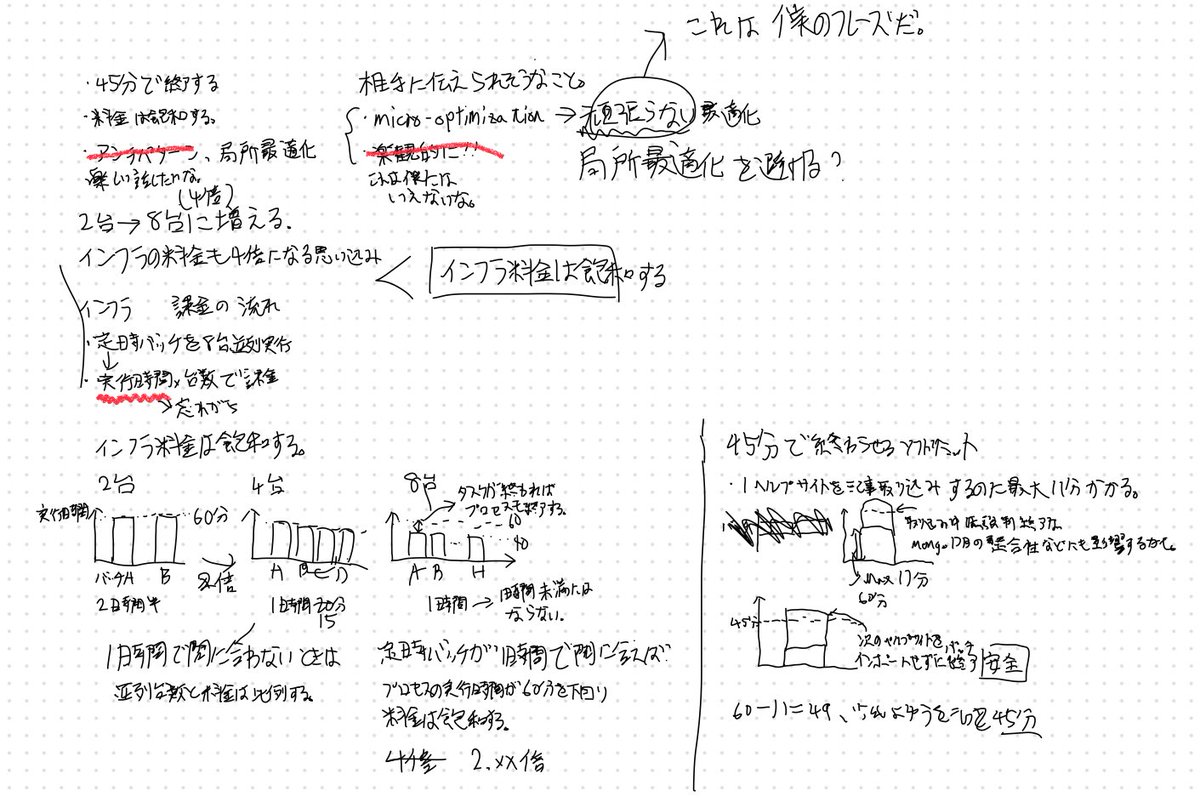 これは 僕のフレーズだ。
・45分で終了する
・料金は飽和する。
・アンチパターン、局所最適化
楽しい話したいな。
相手に伝えられそうなこと。
・micro-optimization → 頑張らない最適化
・楽観的に!!
これは僕には
いえないな。
局所最適化を避ける?
(4倍)
2台→8台に増える.
インフラの料金も4倍になる思い込み
インフラ料金は飽和する
インフラ 課金の流れ
・定時バッチを8台並列実行
↓
・実行時間×台数で課金
→忘れがち
インフラ料金は飽和する。
2台
実行時間
60分
バッチA B
2時間半
2倍
4台
A B C D
1時間
15
8台
タスクが終われば
プロセスも終了する。
60
40
A B H
1時間 → 1時間未満には
ならない。
1時間で間に合わないときは
並列台数と料金は比例する。
定時バッチが1時間で間に合えば
プロセスの実行時間が60分を下回り
料金は飽和する。
4倍 2.xx倍
45分で終わらせるソフトリミット
・1ヘルプサイトを記事取り込みするのに最大11分かかる。
Max 11分
60分
45分
次のヘルプサイトを
インポートせずに終了 安全
60-11=49、 45分